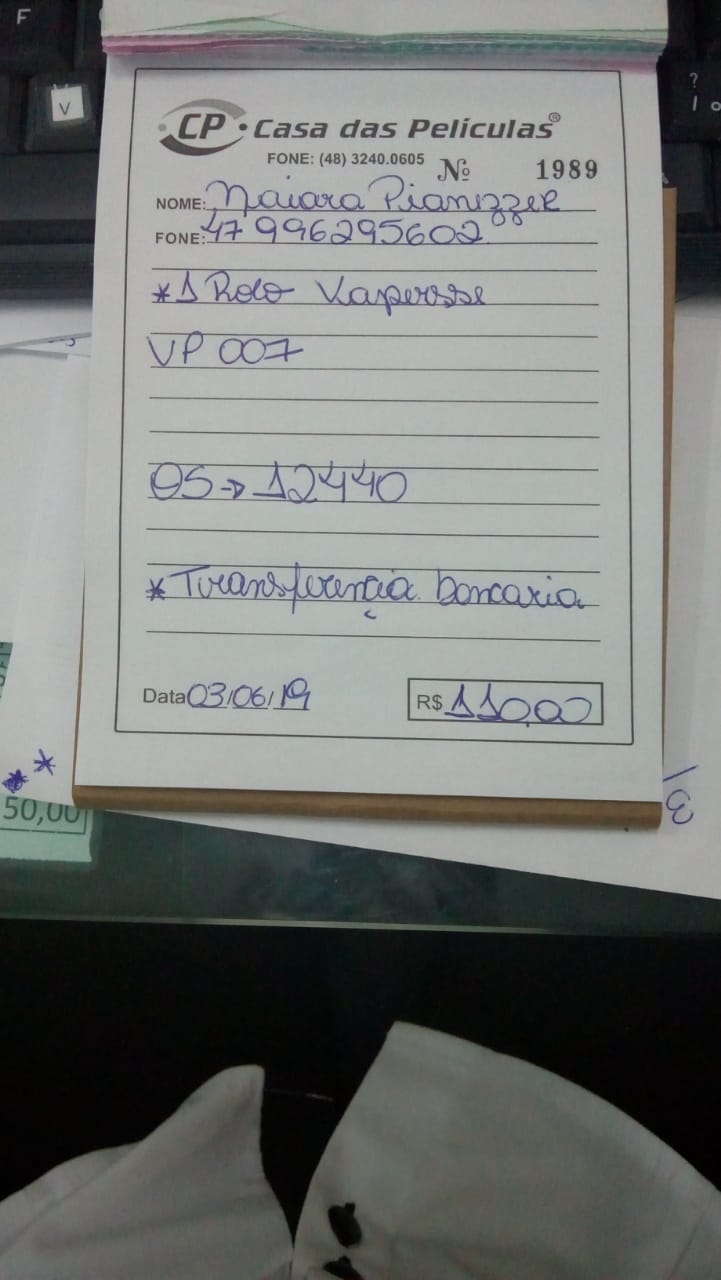 F
V
?
/
CP • Casa das Películas®
FONE: (48) 3240.0605 Nº 1989
NOME: Naiara Pianizzer
FONE: 47 996295602
*1 Rolo Vapersse
VP 007
OS→12440
*Transferência bancaria
Data 03/06/19 R$ 110,00
50,00